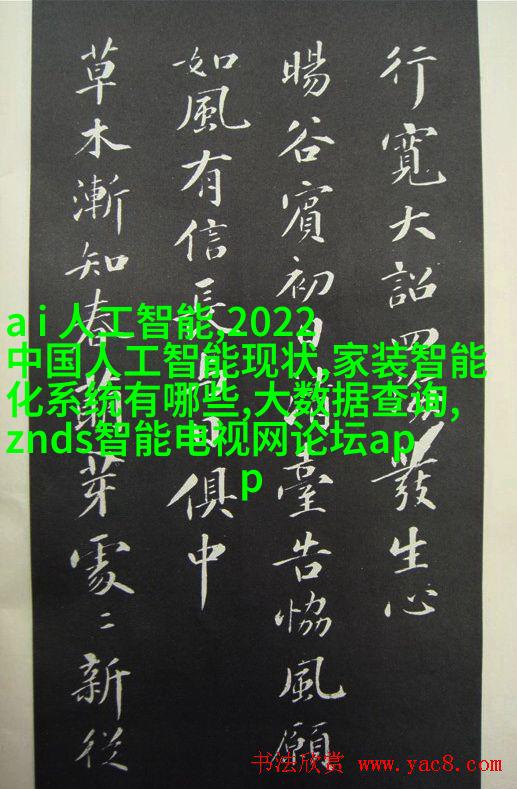 行寬大詔四海發生心
暘谷賓初日清臺告協風願
如風有信長與日俱中
草木漸知春萌芽處〻新從
a i 人工智能,2022
中国人工智能现状,家装智能
化系统有哪些,大数据查询,
znds智能电视网论坛ap
p
书法欣赏 www.yac8.com